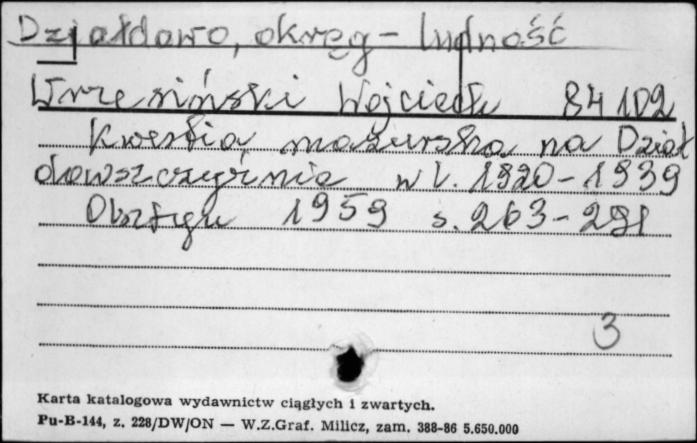 Działdowo, okręg - ludność
Wrzesiński Wojciech 84102
Kwestia mazurska na Dział
dowszczyźnie w l. 1920-1939
Olsztyn 1959 s. 263-291
3
Karta katalogowa wydawnictw ciągłych i zwartych.
Pu-B-144, z. 228/DW/ON — W.Z.Graf. Milicz, zam. 388-86 5.650.000